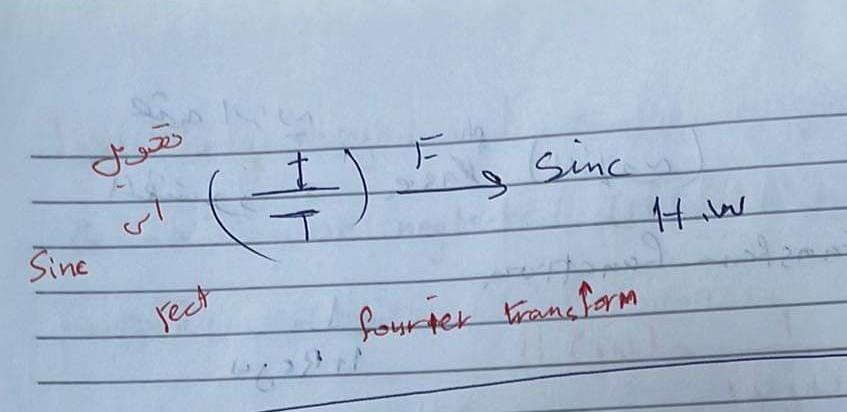 تحويل
(t/T) F→ Sinc
ال
H.W
Sinc
rect
fourier transform